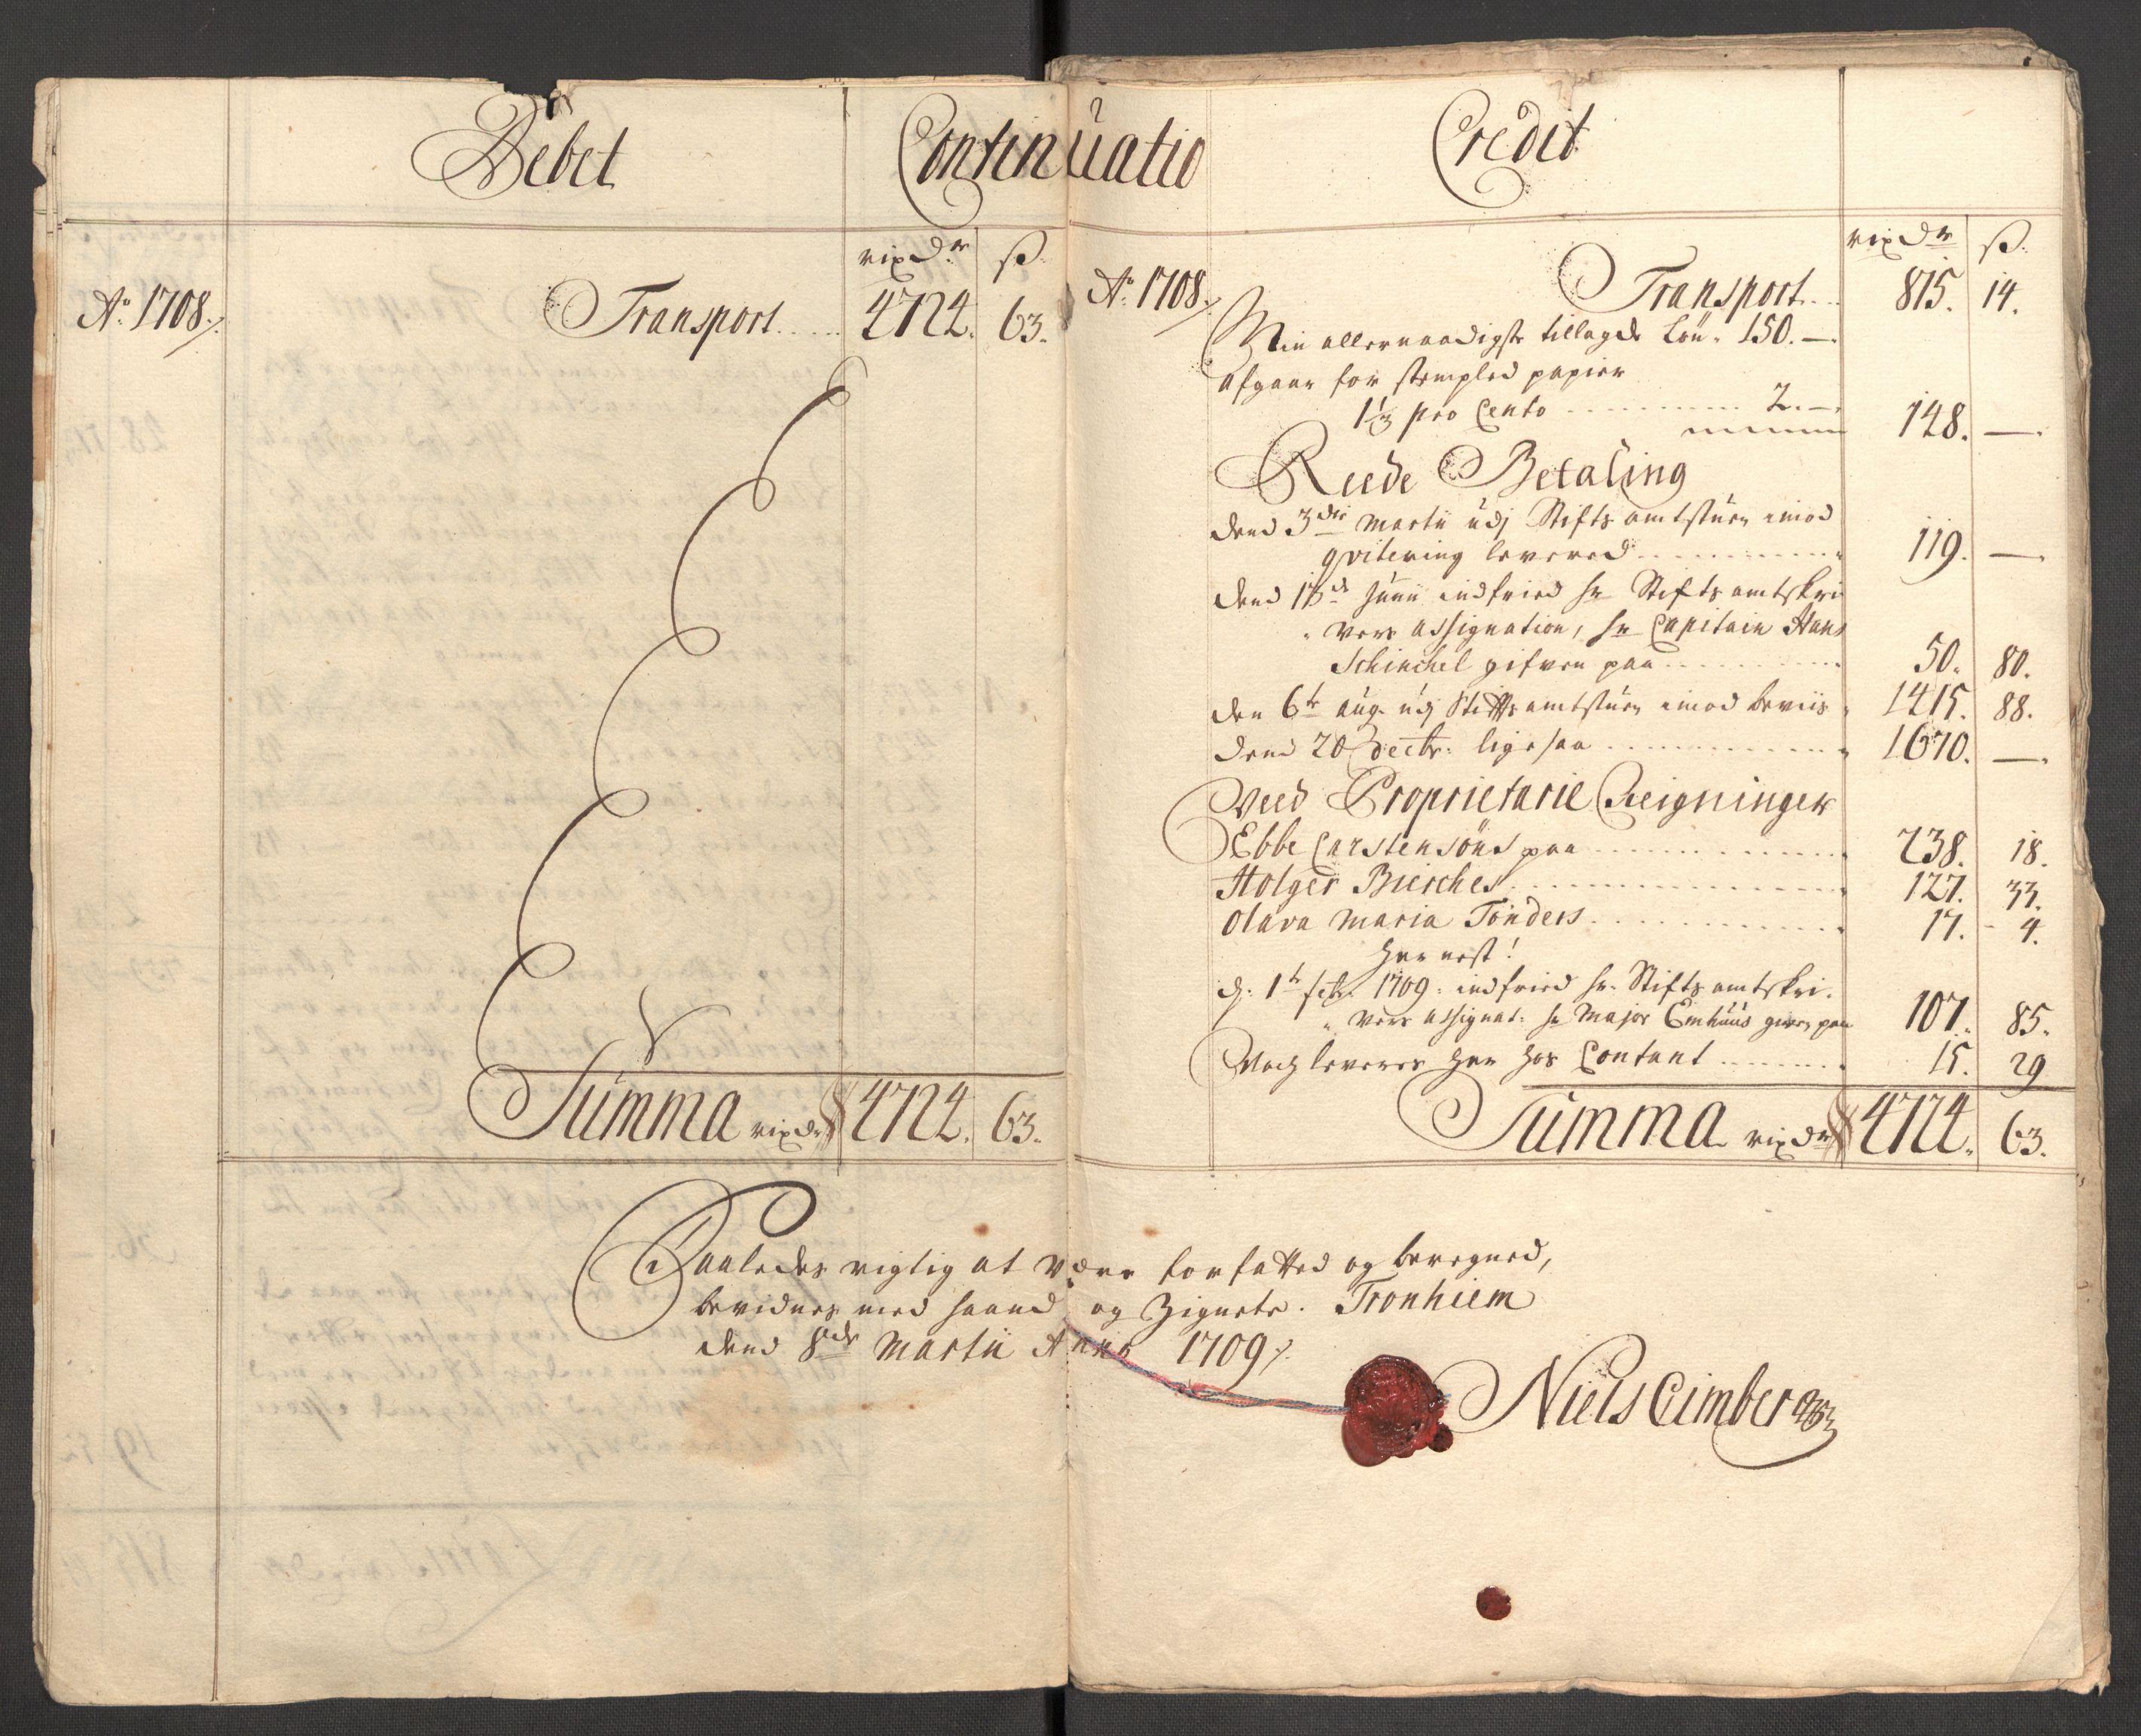 Debet
Continuatio
Credit
rixdr ß
Ao 1708
Transport 4724. 63.
Summa rixdr 4724. 63.
rixdr ß
Ao 1708
Transport 815. 14.
Min allernaadigste tillagde Løn 150. –
afgaar for stempled papier
1 1/3 pro Cento 2. –
148. –
Reede Betaling
Dend 3die Martii udj Stifts amtstuen imod
qvitering levered 119. –
Dend Junii indfried hr Stifts amtskri
vers assignation, hr Capitain Hans
Schinchel gifven paa 50. 80.
den 6te aug. udj Stiftsamtstuen imod beviis 1415. 88.
Dend 20 Decbr: ligesaa 1670. –
Veed Proprietarie Reigninger
Ebbe Carstensøns paa 238. 18.
Holger Bierches 127. 33.
Olava Maria Tønders 17. 4.
Her nest!
d. 1te febr. 1709. indfried hr. Stifts amtskri
vers assignat: hr Major Emhuus given paa 107. 85.
Noch leveres her hos Contant 15. 29
Summa rixdr 4724. 63.
Saaledes rigtig at være forfatted og beregned,
bevidnes med haand og Zignete. Tronhiem
Dend 8de Martii Anno 1709
Niels Cimber